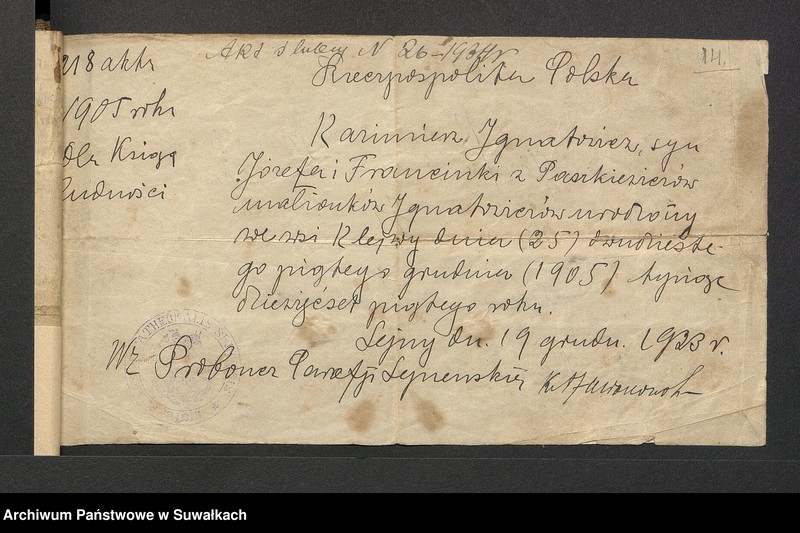 Akt ślubny N 26 - 1934 r
14.
218 akta
1905 roku
dla Ksiąg
ludności
Rzeczpospolita Polska
Kazimierz Ignatowicz, syn
Józefa i Francinki z Paszkiewiczów
małżonków Ignatowiczów urodzony
we wsi Klejwy dnia (25) dwudzieste-
go piątego grudnia (1905) tysiąc
dziewięćset piątego roku.
Sejny dn. 19 grudn. 1933 r.
Wz Proboszcz Parafji Sejneńskiej
Archiwum Państwowe w Suwałkach